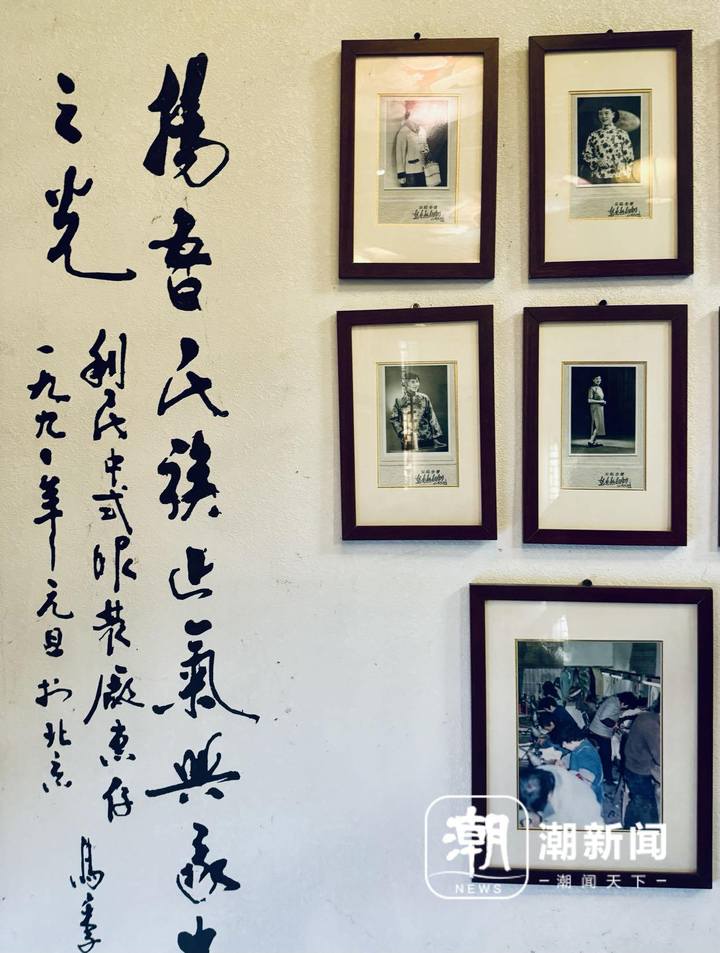 揚吾民族正氣
之光
利民中式服裝廠惠存
一九九〇年元旦於北京
馬季
潮
NEWS
潮新闻
潮闻天下